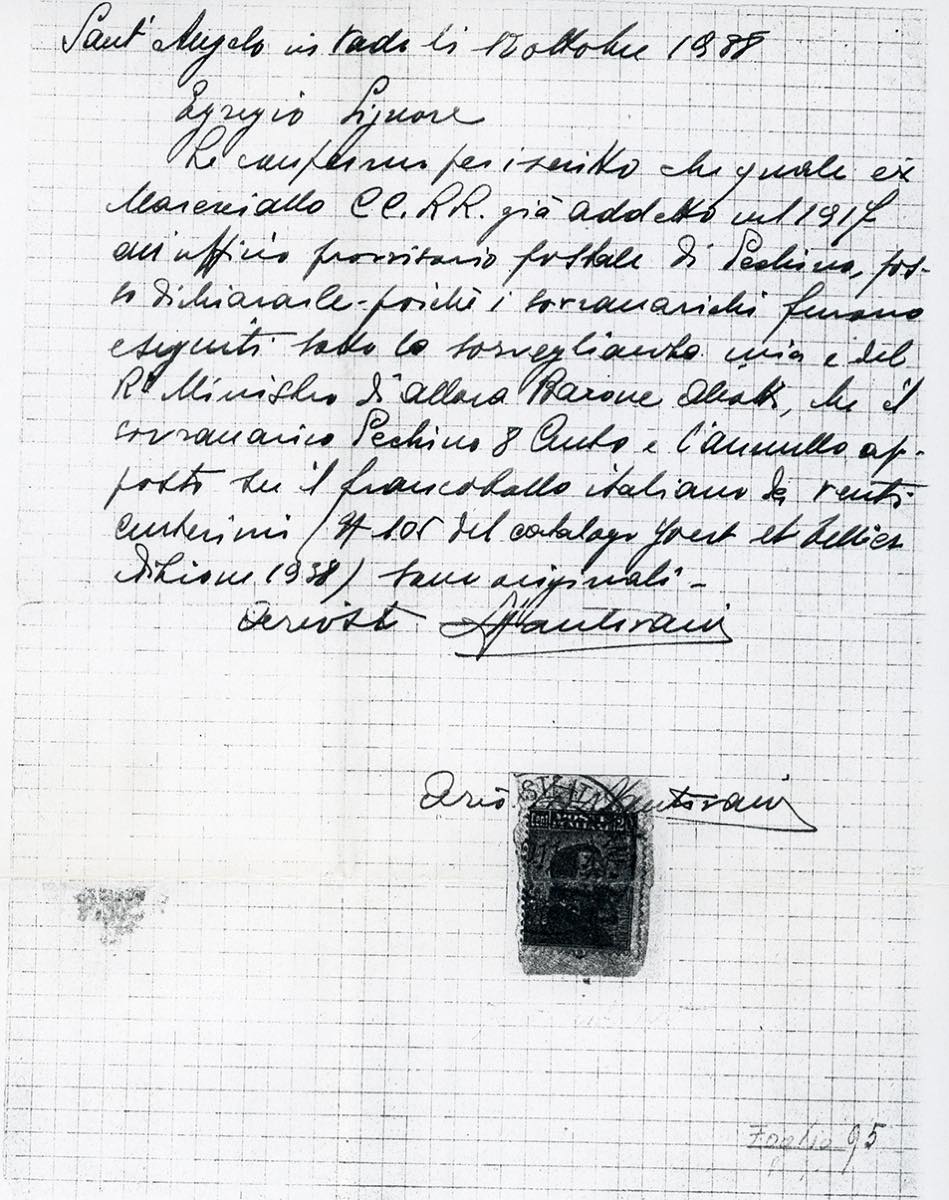 Sant' Angelo in Vado li 12 ottobre 1938
Egregio Signore
Le confermo per iscritto che quale ex
Maresciallo CC.RR. già addetto nel 1917
all'ufficio provvisorio postale di Pechino, pos-
so dichiararle - poichè i sovracarichi furono
eseguiti sotto la sorveglianza mia e del
R° Ministro d'allora Barone Aliotti, che il
sovracarico Pechino 8 Cents e l'annullo ap-
posti su il francobollo italiano da venti
centesimi (N 105 del catalogo Yvert et Tellier
edizione 1938) sono originali -
Ariosto
Ario
Foglio 95